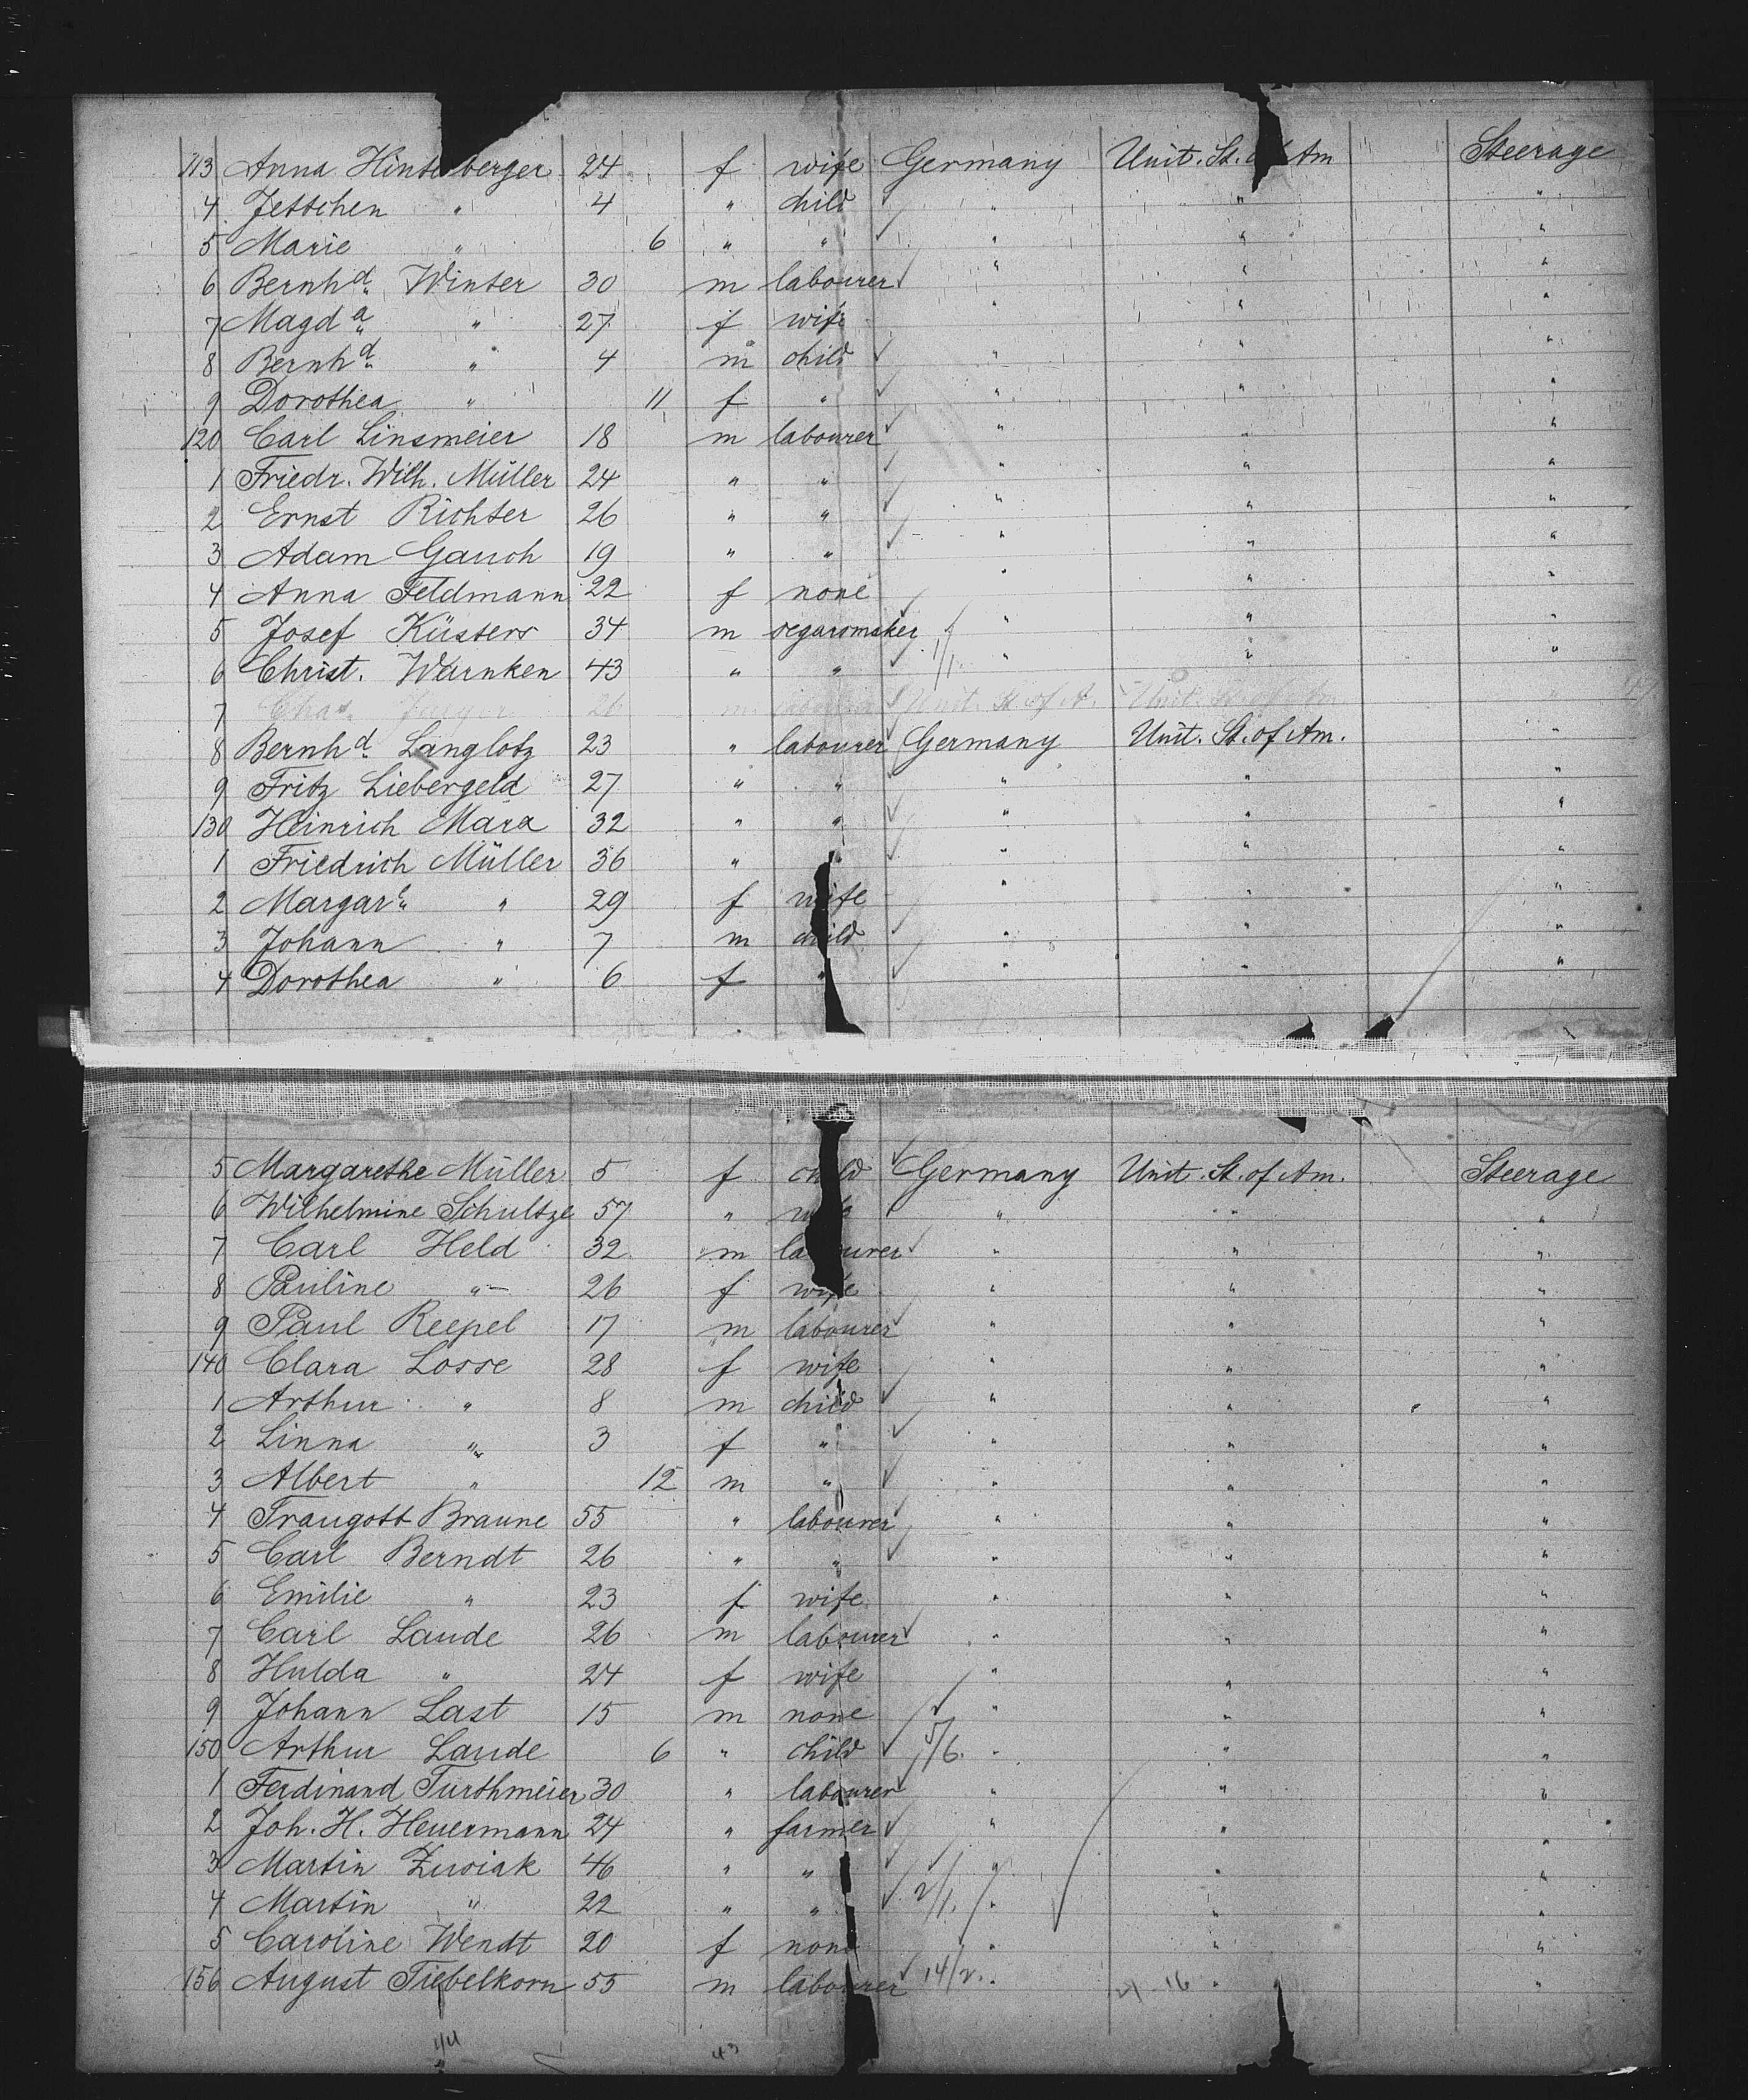 113 Anna Hinterberger 24 f wife Germany Unit. St. of Am Steerage
4 Jettchen " 4 " child " " "
5 Marie " 6 " " " " "
6 Bernhd. Winter 30 m labourer " " "
7 Magda. " 27 f wife " " "
8 Bernhd. " 4 m child " " "
9 Dorothea " 11 f " " " "
120 Carl Linsmeier 18 m labourer " " "
1 Friedr. Wilh. Müller 24 " " " " "
2 Ernst Richter 26 " " " " "
3 Adam Gauch 19 " " " " "
4 Anna Feldmann 22 f none " " "
5 Josef Küsters 34 m segarsmaker " " "
6 Christ. Warnken 43 " " 1/1. " " "
7 Chas. 26 m labourer Unit. St. of A. Unit. St. of Am "
8 Bernhd. Langlotz 23 " labourer Germany Unit. St. of Am. "
9 Fritz Liebergeld 27 " " " " "
130 Heinrich Marx 32 " " " " "
1 Friedrich Müller 36 " " " " "
2 Margar. " 29 f wife " " "
3 Johann " 7 m child " " "
4 Dorothea " 6 f " " " "
5 Margarethe Müller 5 f child Germany Unit. St. of Am. Steerage
6 Wilhelmine Schultze 57 " " " "
7 Carl Held 32 m labourer " " "
8 Pauline " 26 f wife " " "
9 Paul Reepel 17 m labourer " " "
140 Clara Losse 28 f wife " " "
1 Arthur " 8 m child " " "
2 Linna " 3 f " " " "
3 Albert " 12 m " " " "
4 Traugott Braune 55 " labourer " " "
5 Carl Berndt 26 " " " " "
6 Emilie " 23 f wife " " "
7 Carl Laude 26 m labourer " " "
8 Hulda " 24 f wife " " "
9 Johann Last 15 m none " " "
150 Arthur Laude 6 " child 5/6. " " "
1 Ferdinand Turthmeier 30 " labourer " " "
2 Joh. H. Heuermann 24 " farmer " " "
3 Martin Zwiak 46 " " " " "
4 Martin " 22 " " 2/1. " " "
5 Caroline Wendt 20 f none " " "
156 August Tiebelkorn 55 m labourer 14/2. " 16 " "